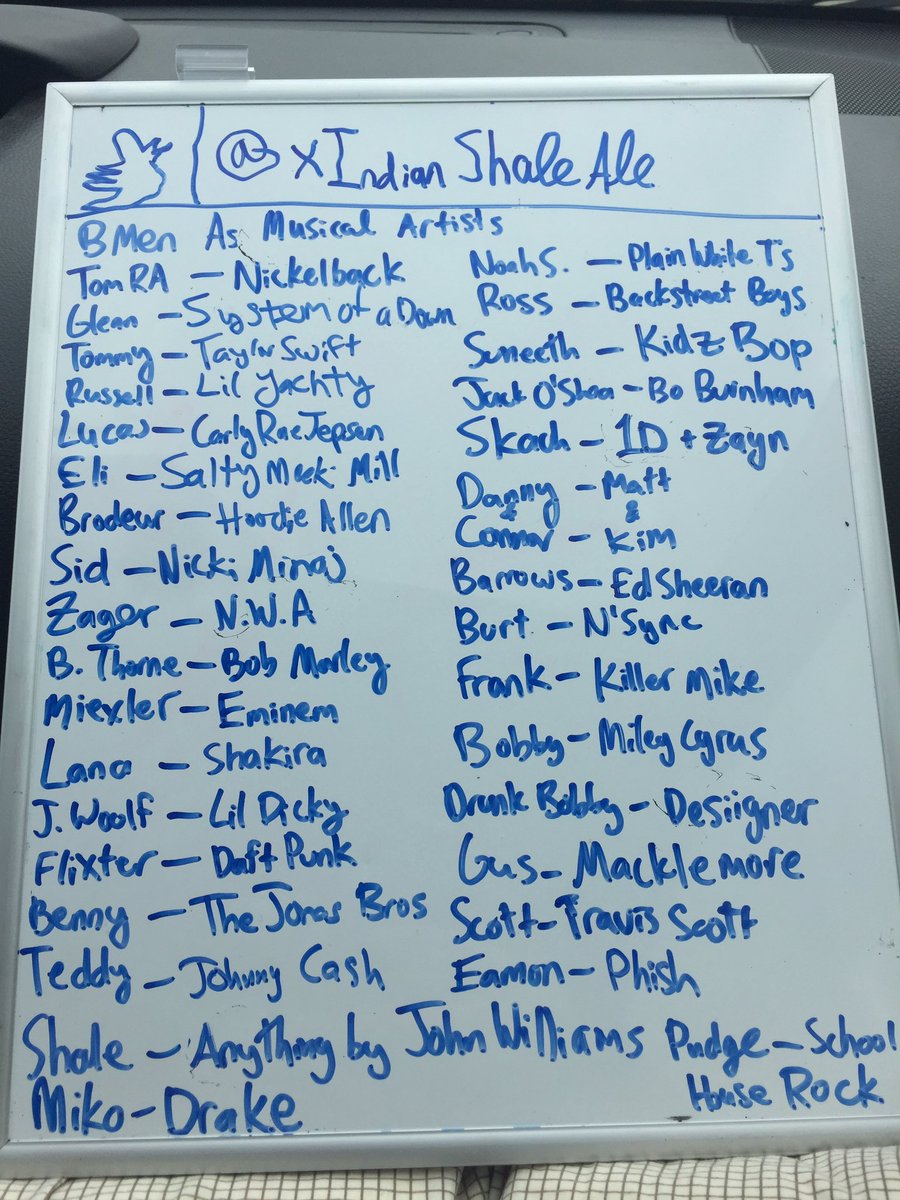 @xIndianShaleAle
BMen As Musical Artists
TomRA - Nickelback
Glenn - System of a Down
Tommy - Taylor Swift
Russell - Lil Yachty
Lucas - Carly Rae Jepsen
Eli - Salty Meek Mill
Brodeur - Hoodie Allen
Sid - Nicki Minaj
Zager - N.W.A
B. Thorne - Bob Marley
Miexler - Eminem
Lana - Shakira
J. Woolf - Lil Dicky
Flixter - Daft Punk
Benny - The Jonas Bros
Teddy - Johnny Cash
Noah S. - Plain White T's
Ross - Backstreet Boys
Suneeth - Kidz Bop
Jack O'Shea - Bo Burnham
Skach - 1D + Zayn
Danny - Matt
& &
Connor - Kim
Barrows - Ed Sheeran
Burt - N'Sync
Frank - Killer Mike
Bobby - Miley Cyrus
Drunk Bobby - Desiigner
Gus - Macklemore
Scott - Travis Scott
Eamon - Phish
Shale - Anything by John Williams
Miko - Drake
Pudge - School
House Rock